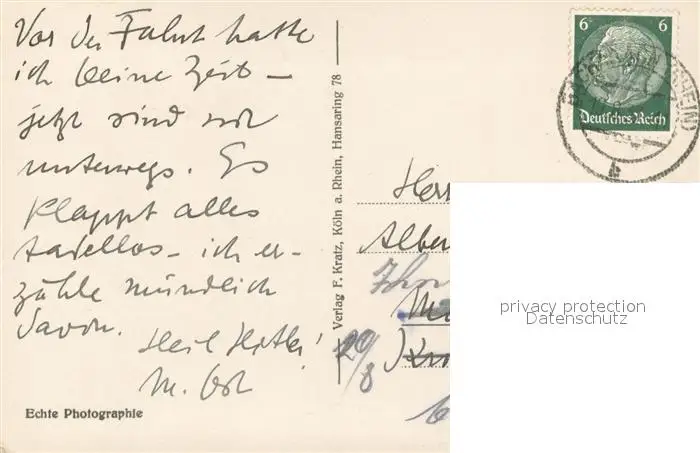 Vor der Fahrt hatte
ich keine Zeit –
jetzt sind wir
unterwegs. Es
klappt alles
tadellos – ich er-
zähle mündlich
davon.
Heil Hitler!
M.
Echte Photographie
Verlag F. Kratz, Köln a. Rhein, Hansaring 78
6 6
Deutsches Reich
(RHEIN)
b
Herr
Alber
20/8
privacy protection
Datenschutz